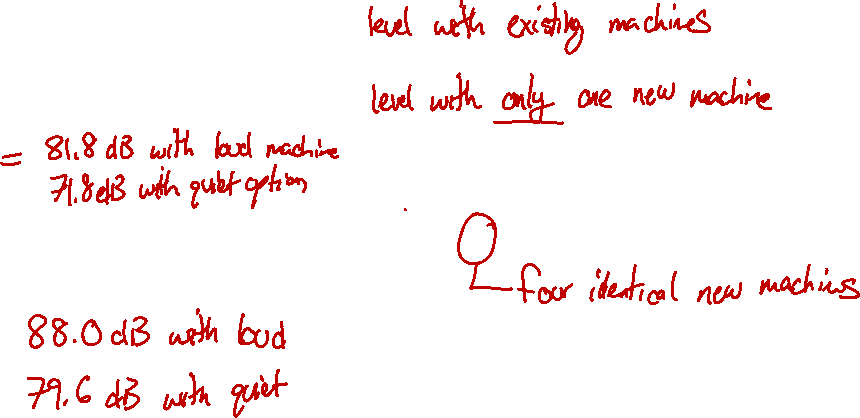 level with existing machines
level with only one new machine
= 81.8 dB with loud machine
71.8 dB with quiet option
four identical new machines
88.0 dB with loud
79.6 dB with quiet